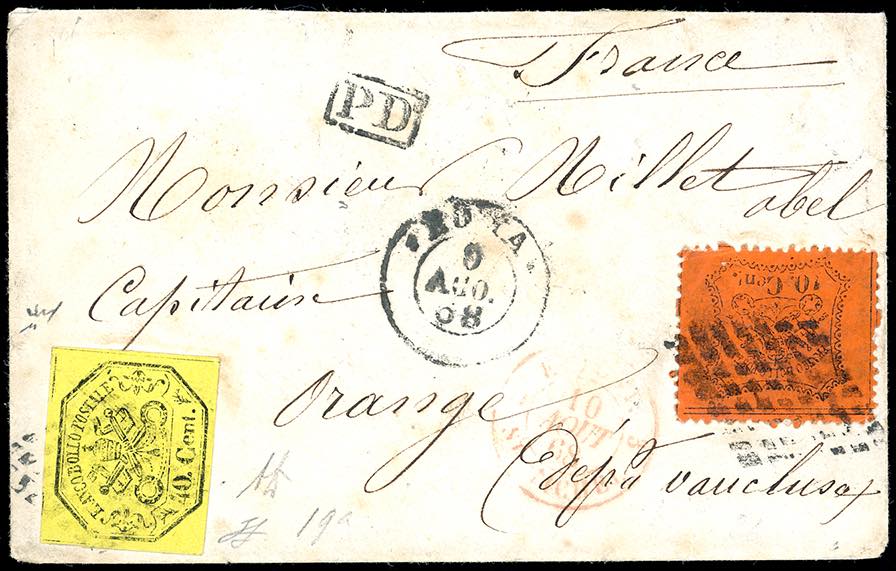 France
PD
Monsieur Millet abel
ROMA
9
AGO.
68
10. Cent.
Capitaine
FRANCOBOLLO POSTALE
40 Cent.
Orange
10
AOUT
68
Dépt Vaucluse
19a